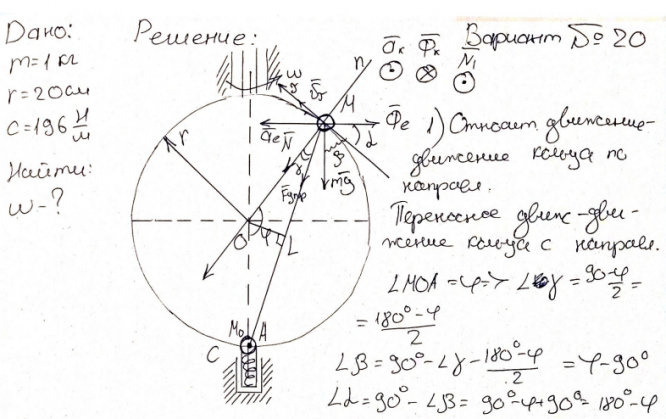 Дано:
m=1 кг
r=20см
c=196 Н/м
Найти:
ω-?
Решение:
Вариант №20
n
ā_к Ф̄_к N̄_1
ω
v̄_r
M
Ф̄_e
ā_e N̄
α
β
γ
m̄g
F̄упр
r
O
φ
L
M₀ A
C
1) Относит. движение-
движение кольца по
направл.
Переносное движ-дви-
жение кольца с направл.
∠MOA = φ => ∠γ = 90-φ/2 =
= (180°-φ)/2
∠β = 90° - ∠γ - (180°-φ)/2 = φ-90°
∠α = 90° - ∠β = 90°-φ+90° = 180°-φ